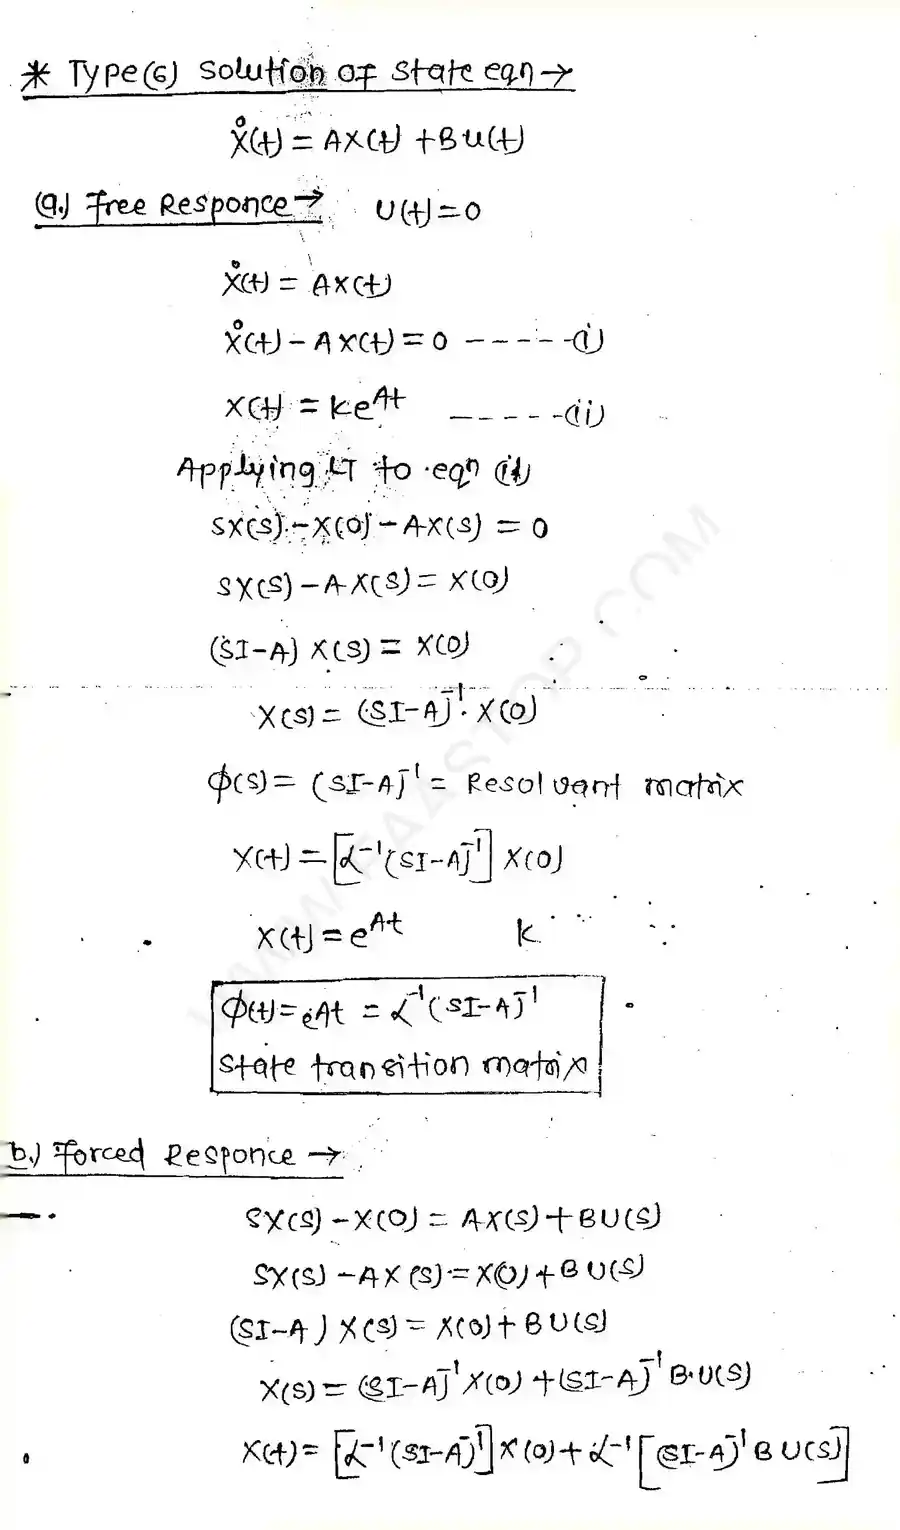 * Type(6) Solution of State eqn →
Ẋ(t) = AX(t) + BU(t)
(a.) Free Responce → U(t) = 0
Ẋ(t) = AX(t)
Ẋ(t) - AX(t) = 0 ------(i)
X(t) = ke^At ------(ii)
Applying LT to eqn (i)
SX(S) - X(0) - AX(S) = 0
SX(S) - AX(S) = X(0)
(SI-A) X(S) = X(0)
X(S) = (SI-A)^-1 . X(0)
Φ(S) = (SI-A)^-1 = Resolvant matrix
X(t) = [ℒ^-1 (SI-A)^-1] X(0)
X(t) = e^At k
Φ(t) = e^At = ℒ^-1 (SI-A)^-1
State transition matrix
b.) Forced Responce →
SX(S) - X(0) = AX(S) + BU(S)
SX(S) - AX(S) = X(0) + BU(S)
(SI-A) X(S) = X(0) + BU(S)
X(S) = (SI-A)^-1 X(0) + (SI-A)^-1 B.U(S)
X(t) = [ℒ^-1 (SI-A)^-1] X(0) + ℒ^-1 [(SI-A)^-1 BU(S)]